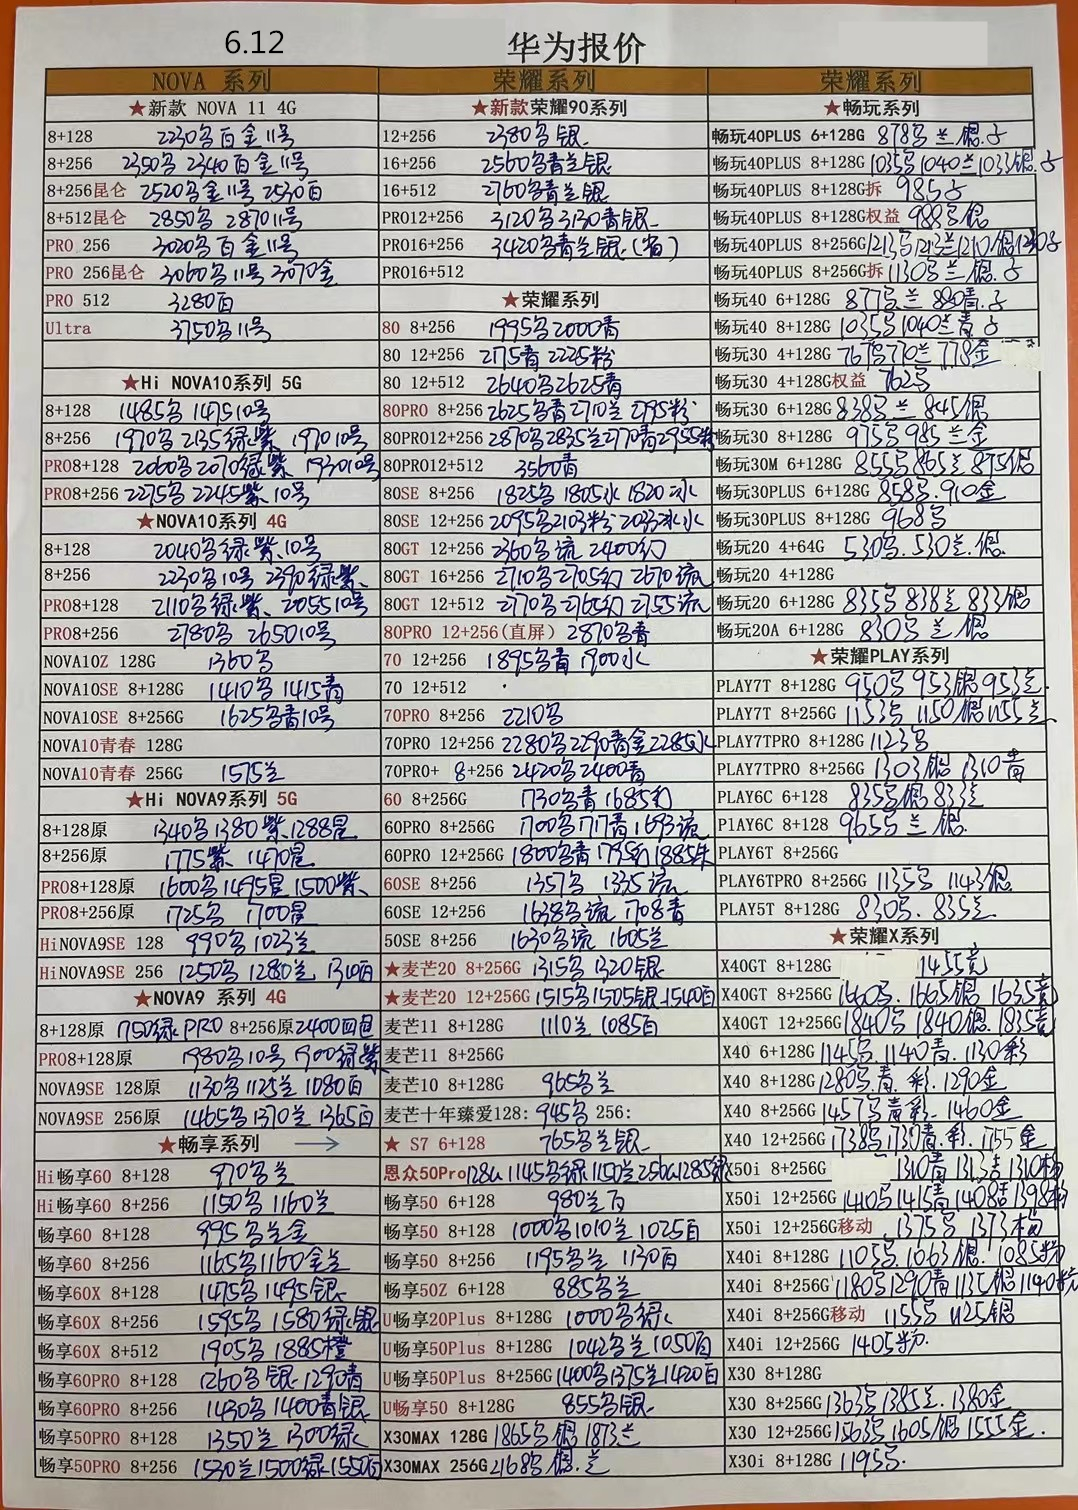 6.12
华为报价
NOVA 系列
★新款 NOVA 11 4G
8+128 2230多白金11号
8+256 2350多 2340白金11号
8+256昆仑 2520多金11号 2530白
8+512昆仑 2850多 2870 11号
PRO 256 3020多白金11号
PRO 256昆仑 3060多11号 3070金
PRO 512 3280白
Ultra 3750多11号
★Hi NOVA10系列 5G
8+128 1485多 1475 10号
8+256 1970多 2135绿紫 1970 10号
PRO8+128 2060多2070绿紫 1930 10号
PRO8+256 2275多 2245紫.10号
★NOVA10系列 4G
8+128 2040多绿紫.10号
8+256 2230多10号 2390绿紫
PRO8+128 2110多绿紫 2055 10号
PRO8+256 2780多 2650 10号
NOVA10Z 128G 1360多
NOVA10SE 8+128G 1410多 1415青
NOVA10SE 8+256G 1625多青10号
NOVA10青春 128G
NOVA10青春 256G 1575兰
★Hi NOVA9系列 5G
8+128原 1340多1380紫1288星
8+256原 1775紫 1470星
PRO8+128原 1600多1495星 1500紫
PRO8+256原 1725多 1700星
HiNOVA9SE 128 990多 1023兰
HiNOVA9SE 256 1250多 1280兰 1310白
★NOVA9 系列 4G
8+128原 1750绿 PRO 8+256原2400四色
PRO8+128原 1980多10号 1900绿紫
NOVA9SE 128原 1130多1125兰 1080白
NOVA9SE 256原 1465多1370兰 1365白
★畅享系列 →
Hi畅享60 8+128 970多兰
Hi畅享60 8+256 1150多 1160兰
畅享60 8+128 995多兰金
畅享60 8+256 1165多1160金兰
畅享60X 8+128 1475多1495银
畅享60X 8+256 1595多 1580绿银
畅享60X 8+512 1905多 1885橙
畅享60PRO 8+128 1260多银 1290青
畅享60PRO 8+256 1430多 1400青银
畅享50PRO 8+128 1350兰 1300绿
畅享50PRO 8+256 1530兰1500绿1550白
荣耀系列
★新款荣耀90系列
12+256 2380多银
16+256 2560多青兰银
16+512 2760多青兰银
PRO12+256 3120多3130青银
PRO16+256 3420多青兰银(省)
PRO16+512
★荣耀系列
80 8+256 1995多2000青
80 12+256 2175青 2225粉
80 12+512 2640多2625青
80PRO 8+256 2625多青2710兰 2795粉
80PRO12+256 2870多2835兰2770青2955粉
80PRO12+512 3560青
80SE 8+256 1825多 1805水 1820冰
80SE 12+256 2095多2103粉2033冰水
80GT 12+256 2360多流 2400幻
80GT 16+256 2710多2705幻 2670流
80GT 12+512 2770多2765幻 2755流
80PRO 12+256(直屏) 2870多青
70 12+256 1895多青 1900水
70 12+512
70PRO 8+256 2210多
70PRO 12+256 2280多2290青金2285水
70PRO+ 8+256 2420多2400青
60 8+256G 1730多青 1685幻
60PRO 8+256G 1700多1717青1693流
60PRO 12+256G 1800多青1795幻1885朱
60SE 8+256 1357多 1335流
60SE 12+256 1638多流 1708青
50SE 8+256 1630多流 1605兰
★麦芒20 8+256G 1315多 1320银
★麦芒20 12+256G 1515多1505银1540白
麦芒11 8+128G 1110兰 1085白
麦芒11 8+256G
麦芒10 8+128G 965多兰
麦芒十年臻爱128: 945多 256:
★ S7 6+128 765多兰银
恩众50Pro128G 1145多绿1150兰256G1285绿
畅享50 6+128 980兰白
畅享50 8+128 1000多1010兰 1025白
畅享50 8+256 1195多兰 1130白
畅享50Z 6+128 885多兰
U畅享20Plus 8+128G 1000多绿
U畅享50Plus 8+128G 1042多兰1050白
U畅享50Plus 8+256G 1400多1375兰1420白
U畅享50 8+128G 855多银
X30MAX 128G 1865多银 1873兰
X30MAX 256G 2168多银.兰
荣耀系列
★畅玩系列
畅玩40PLUS 6+128G 878多兰银子
畅玩40PLUS 8+128G 1035多1040兰1033银.子
畅玩40PLUS 8+128G拆 985子
畅玩40PLUS 8+128G权益 988多银
畅玩40PLUS 8+256G 1213多1212兰1210银1230子
畅玩40PLUS 8+256G拆 1130多兰银.子
畅玩40 6+128G 877多兰 880青.子
畅玩40 8+128G 1035多1040兰青子
畅玩30 4+128G 767多770兰 778金
畅玩30 4+128G权益 762多
畅玩30 6+128G 838多兰 845银
畅玩30 8+128G 975多985兰金
畅玩30M 6+128G 855多865兰875银
畅玩30PLUS 6+128G 858多.910金
畅玩30PLUS 8+128G 968多
畅玩20 4+64G 530多.530兰.银
畅玩20 4+128G
畅玩20 6+128G 835多838兰833银
畅玩20A 6+128G 830多兰银
★荣耀PLAY系列
PLAY7T 8+128G 950多953银953兰
PLAY7T 8+256G 1153多1150银1155兰
PLAY7TPRO 8+128G 1123多
PLAY7TPRO 8+256G 1303银 1310青
PLAY6C 6+128 835多银833兰
PlAY6C 8+128 965多兰银
PLAY6T 8+256G
PLAY6TPRO 8+256G 1135多1143银
PLAY5T 8+128G 830多.835兰
★荣耀X系列
X40GT 8+128G 1455竞
X40GT 8+256G 1660多.1665银1635竞
X40GT 12+256G 1840多1840银1835竞
X40 6+128G 1145多.1140青.1130彩
X40 8+128G 1280多.青.彩.1290金
X40 8+256G 1457多青彩 1460金
X40 12+256G 1738多1730青.彩.1755金
X50i 8+256G 1310青
X50i 12+256G 1410多1415青
X50i 12+256G移动 1375多 1373
X40i 8+128G 1105多.1063银.1085粉
X40i 8+256G 1180多1290青1135银1190粉
X40i 8+256G移动 1155多1125银
X40i 12+256G 1405粉
X30 8+128G
X30 8+256G 1363多1385兰.1380金
X30 12+256G 1563多1605银1555金
X30i 8+128G 1195多